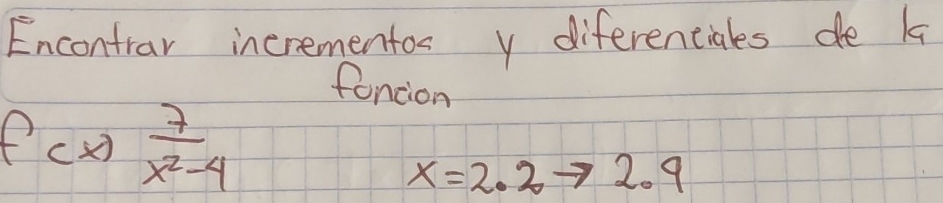 Encontrar incrementos y diferenciales de la
foncion
f(x) 7/(x²-4) x=2.2→2.9